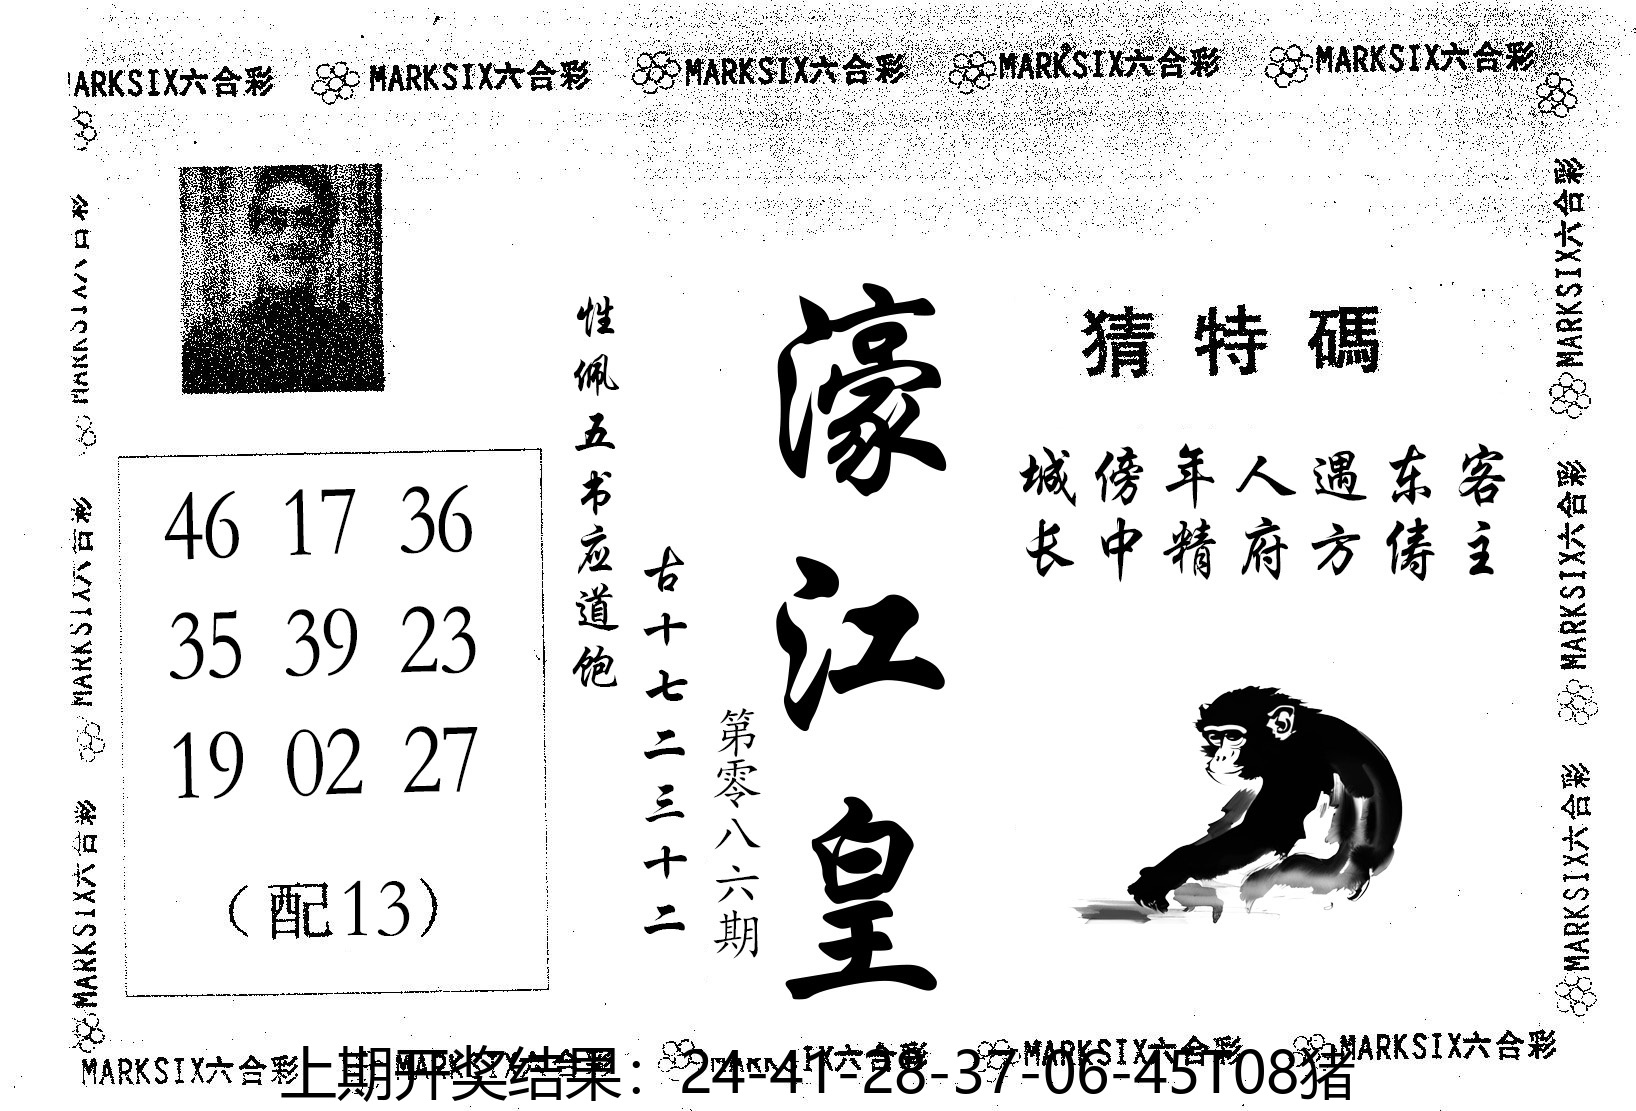 MARKSIX六合彩 MARKSIX六合彩 MARKSIX六合彩 MARKSIX六合彩 MARKSIX六合彩
MARKSIX六合彩
MARKSIX六合彩
MARKSIX六合彩
46 17 36
35 39 23
19 02 27
（配13）
性佩五书应道饱
古十七二三十二
第零八六期
濠江皇
猜特碼
城傍年人遇东客
长中精府方俦主
MARKSIX六合彩
MARKSIX六合彩
MARKSIX六合彩
MARKSIX六合彩 MARKSIX六合彩 MARKSIX六合彩 MARKSIX六合彩 MARKSIX六合彩
上期开奖结果：24-41-28-37-06-45T08猪